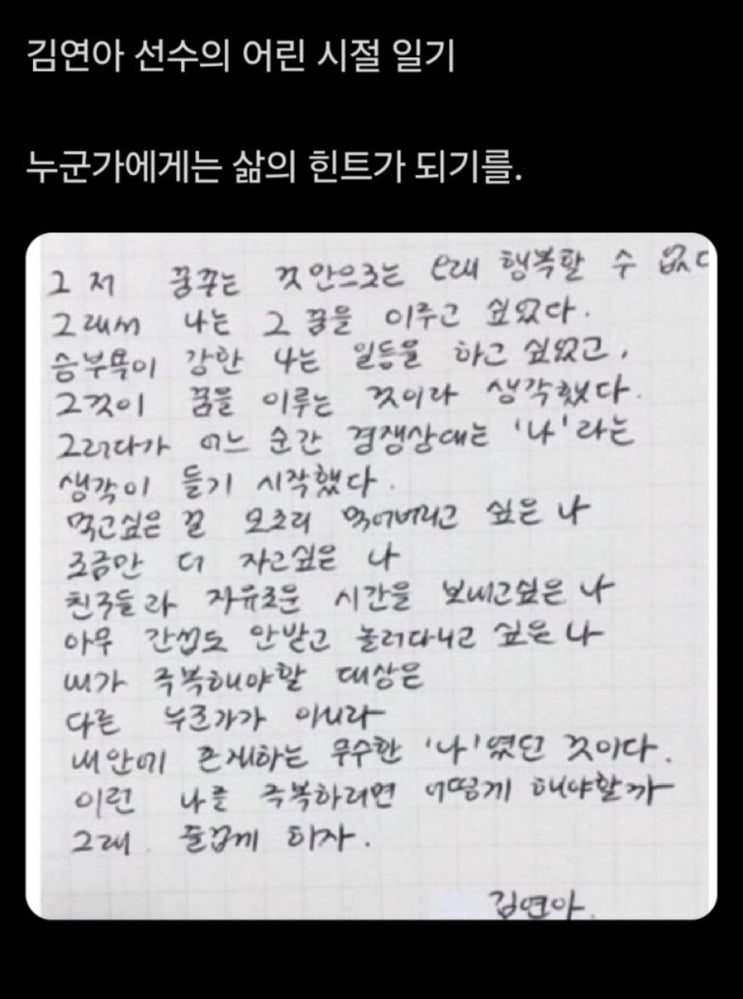 김연아 선수의 어린 시절 일기
누군가에게는 삶의 힌트가 되기를.
그저 꿈꾸는 것 만으로는 오래 행복할 수 없다
그래서 나는 그 꿈을 이루고 싶었다.
승부욕이 강한 나는 일등을 하고 싶었고,
그것이 꿈을 이루는 것이라 생각했다.
그러다가 어느 순간 경쟁상대는 '나'라는
생각이 들기 시작했다.
먹고싶은 걸 모조리 먹어버리고 싶은 나
조금만 더 자고싶은 나
친구들과 자유로운 시간을 보내고싶은 나
아무 간섭도 안받고 놀러다니고 싶은 나
내가 극복해야할 대상은
다른 누군가가 아니라
내안에 존재하는 무수한 '나'였던 것이다.
이런 나를 극복하려면 어떻게 해야할까
그래 즐겁게 하자.
김연아.